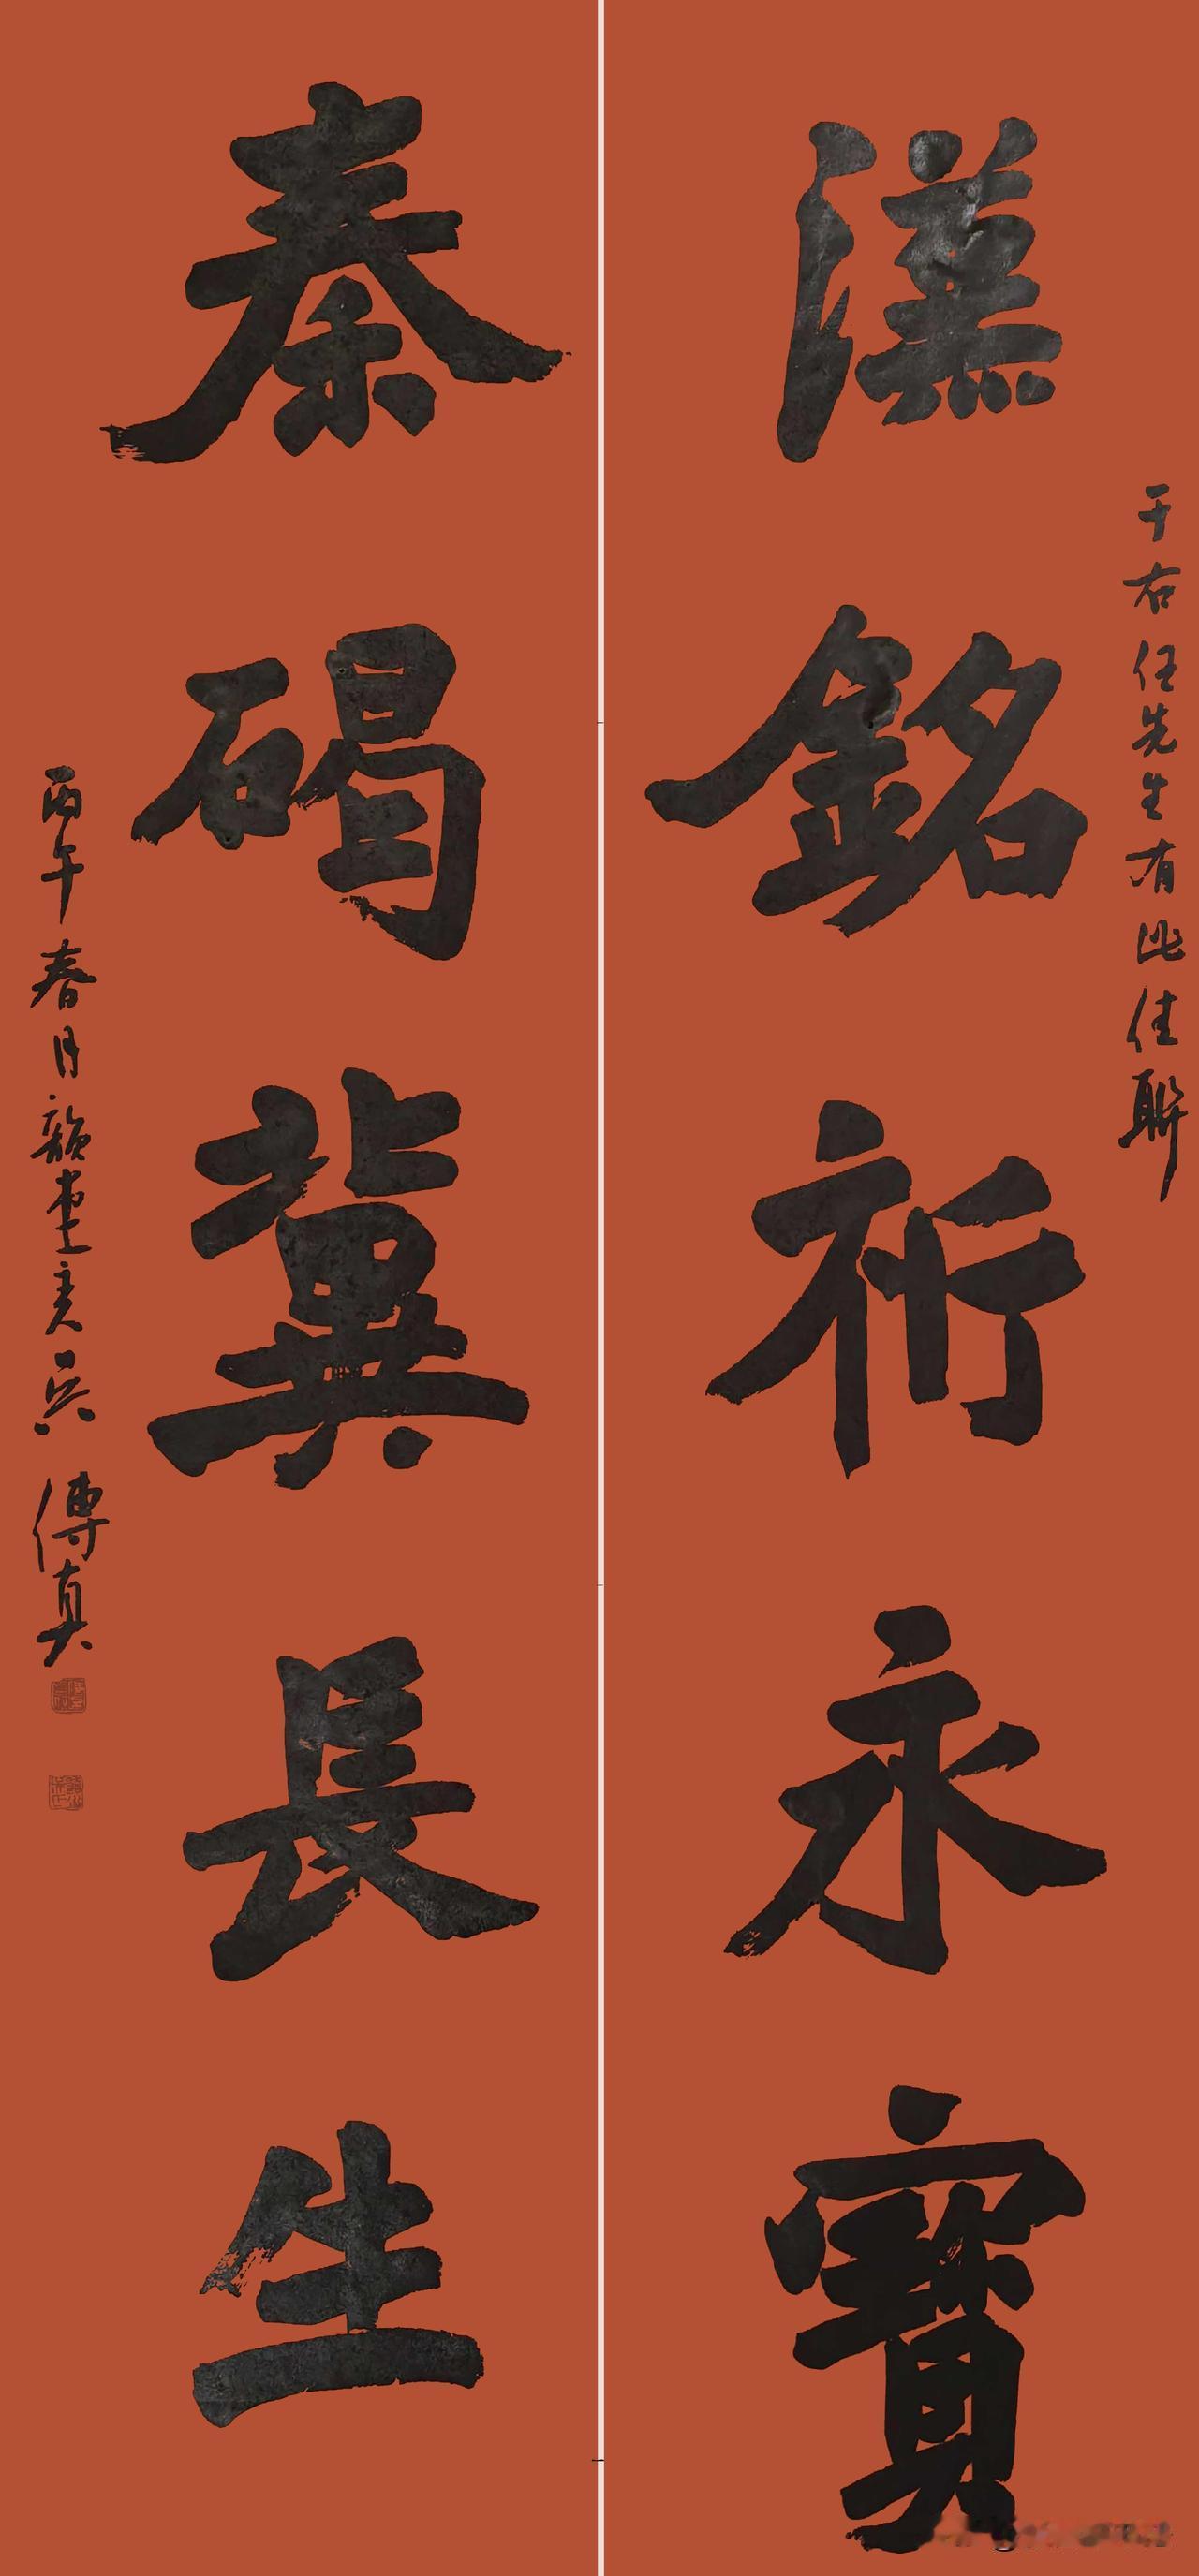 漢銘祈永寶
于右任先生有此佳聯
秦碣冀長生
丙午春月韻堂主人吳傅真